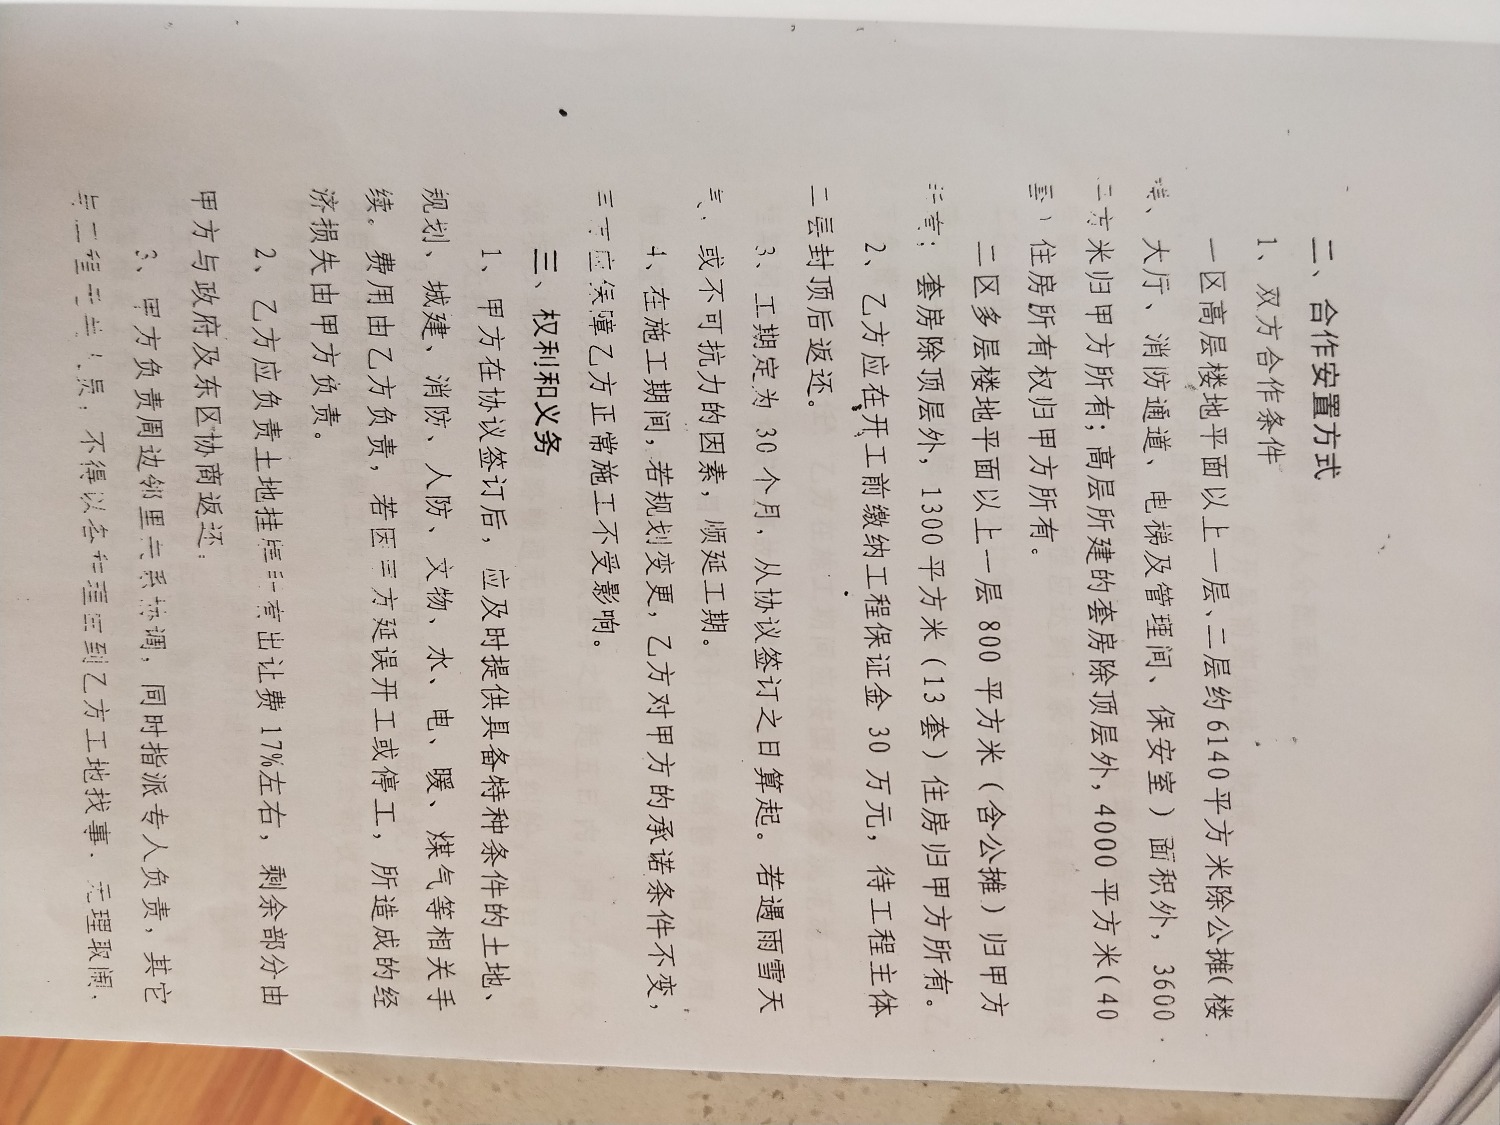 二、合作安置方式
1、双方合作条件
一区高层楼地平面以上一层、二层约6140平方米除公摊(楼
梯、大厅、消防通道、电梯及管理间、保安室)面积外，3600
方米归甲方所有；高层所建的套房除顶层外，4000平方米(40
)住房所有权归甲方所有。
二区多层楼地平面以上一层800平方米(含公摊)归甲方
所有；套房除顶层外，1300平方米(13套)住房归甲方所有。
2、乙方应在开工前缴纳工程保证金30万元，待工程主体
二层封顶后返还。
3、工期定为30个月，从协议签订之日算起。若遇雨雪天
或不可抗力的因素，顺延工期。
4、在施工期间，若规划变更，乙方对甲方的承诺条件不变，
应保障乙方正常施工不受影响。
三、权利和义务
1、甲方在协议签订后，应及时提供具备特种条件的土地、
规划、城建、消防、人防、文物、水、电、暖、煤气等相关手
续。费用由乙方负责，若因甲方延误开工或停工，所造成的经
济损失由甲方负责。
2、乙方应负责土地挂牌出让费17%左右，剩余部分由
甲方与政府及东区协商返还。
3、甲方负责周边邻里关系协调，同时指派专人负责，其它
人员，不得以各种理由到乙方工地找事、无理取闹、